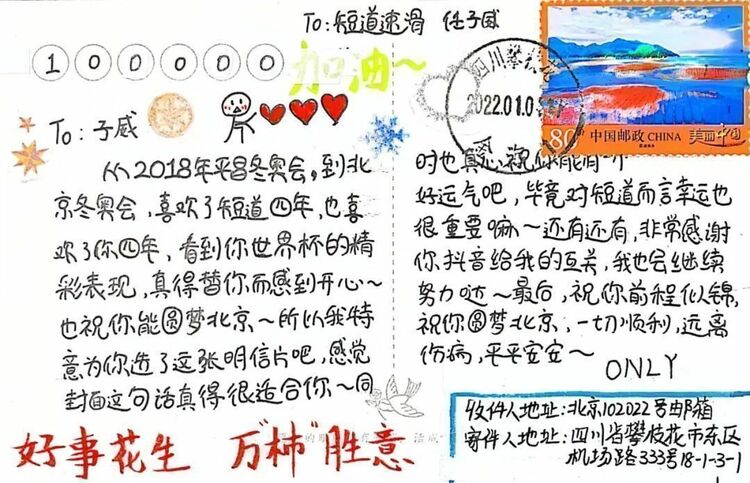 To: 短道速滑 任子威
100000
加油~
四川攀枝花
2022.01.0
80
中国邮政 CHINA 美丽中国
To: 子威
从2018年平昌冬奥会,到北
京冬奥会,喜欢了短道四年,也喜
欢了你四年,看到你世界杯的精
彩表现,真得替你而感到开心~
也祝你能圆梦北京~所以我特
意为你选了这张明信片吧,感觉
封面这句话真得很适合你~同
时也真心祝你能有一个
好运气吧,毕竟对短道而言幸运也
很重要嘛~还有还有,非常感谢
你抖音给我的互关,我也会继续
努力哒~最后,祝你前程似锦,
祝你圆梦北京,一切顺利,远离
伤病,平平安安~
ONLY
好事花生 万"柿"胜意
收件人地址:北京102022号邮箱
寄件人地址:四川省攀枝花市东区
机场路333号18-1-3-1